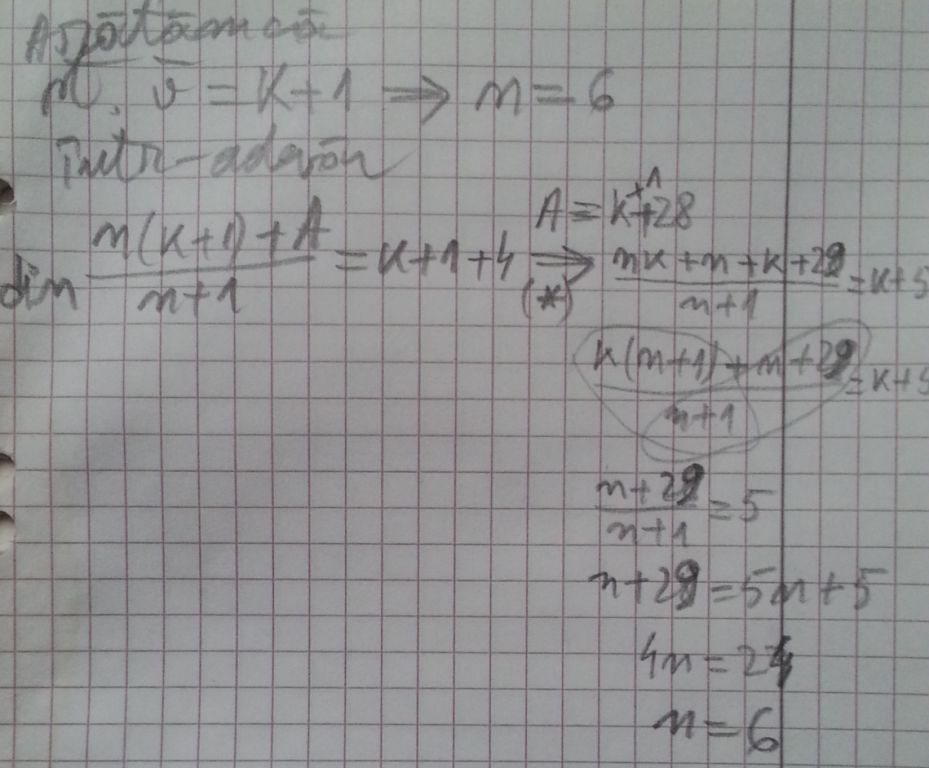 Arătăm că
m. v = K+1 ⟹ n = 6
Într-adevăr
din \frac{n(K+1)+A}{n+1} = K+1+4 \underset{(*)}{\overset{A = K+1+28}{⟹}} \frac{nK+n+K+29}{n+1} = K+5
\frac{K(n+1)+n+29}{n+1} = K+5
\frac{n+29}{n+1} = 5
n+29 = 5n+5
4n = 24
n = 6